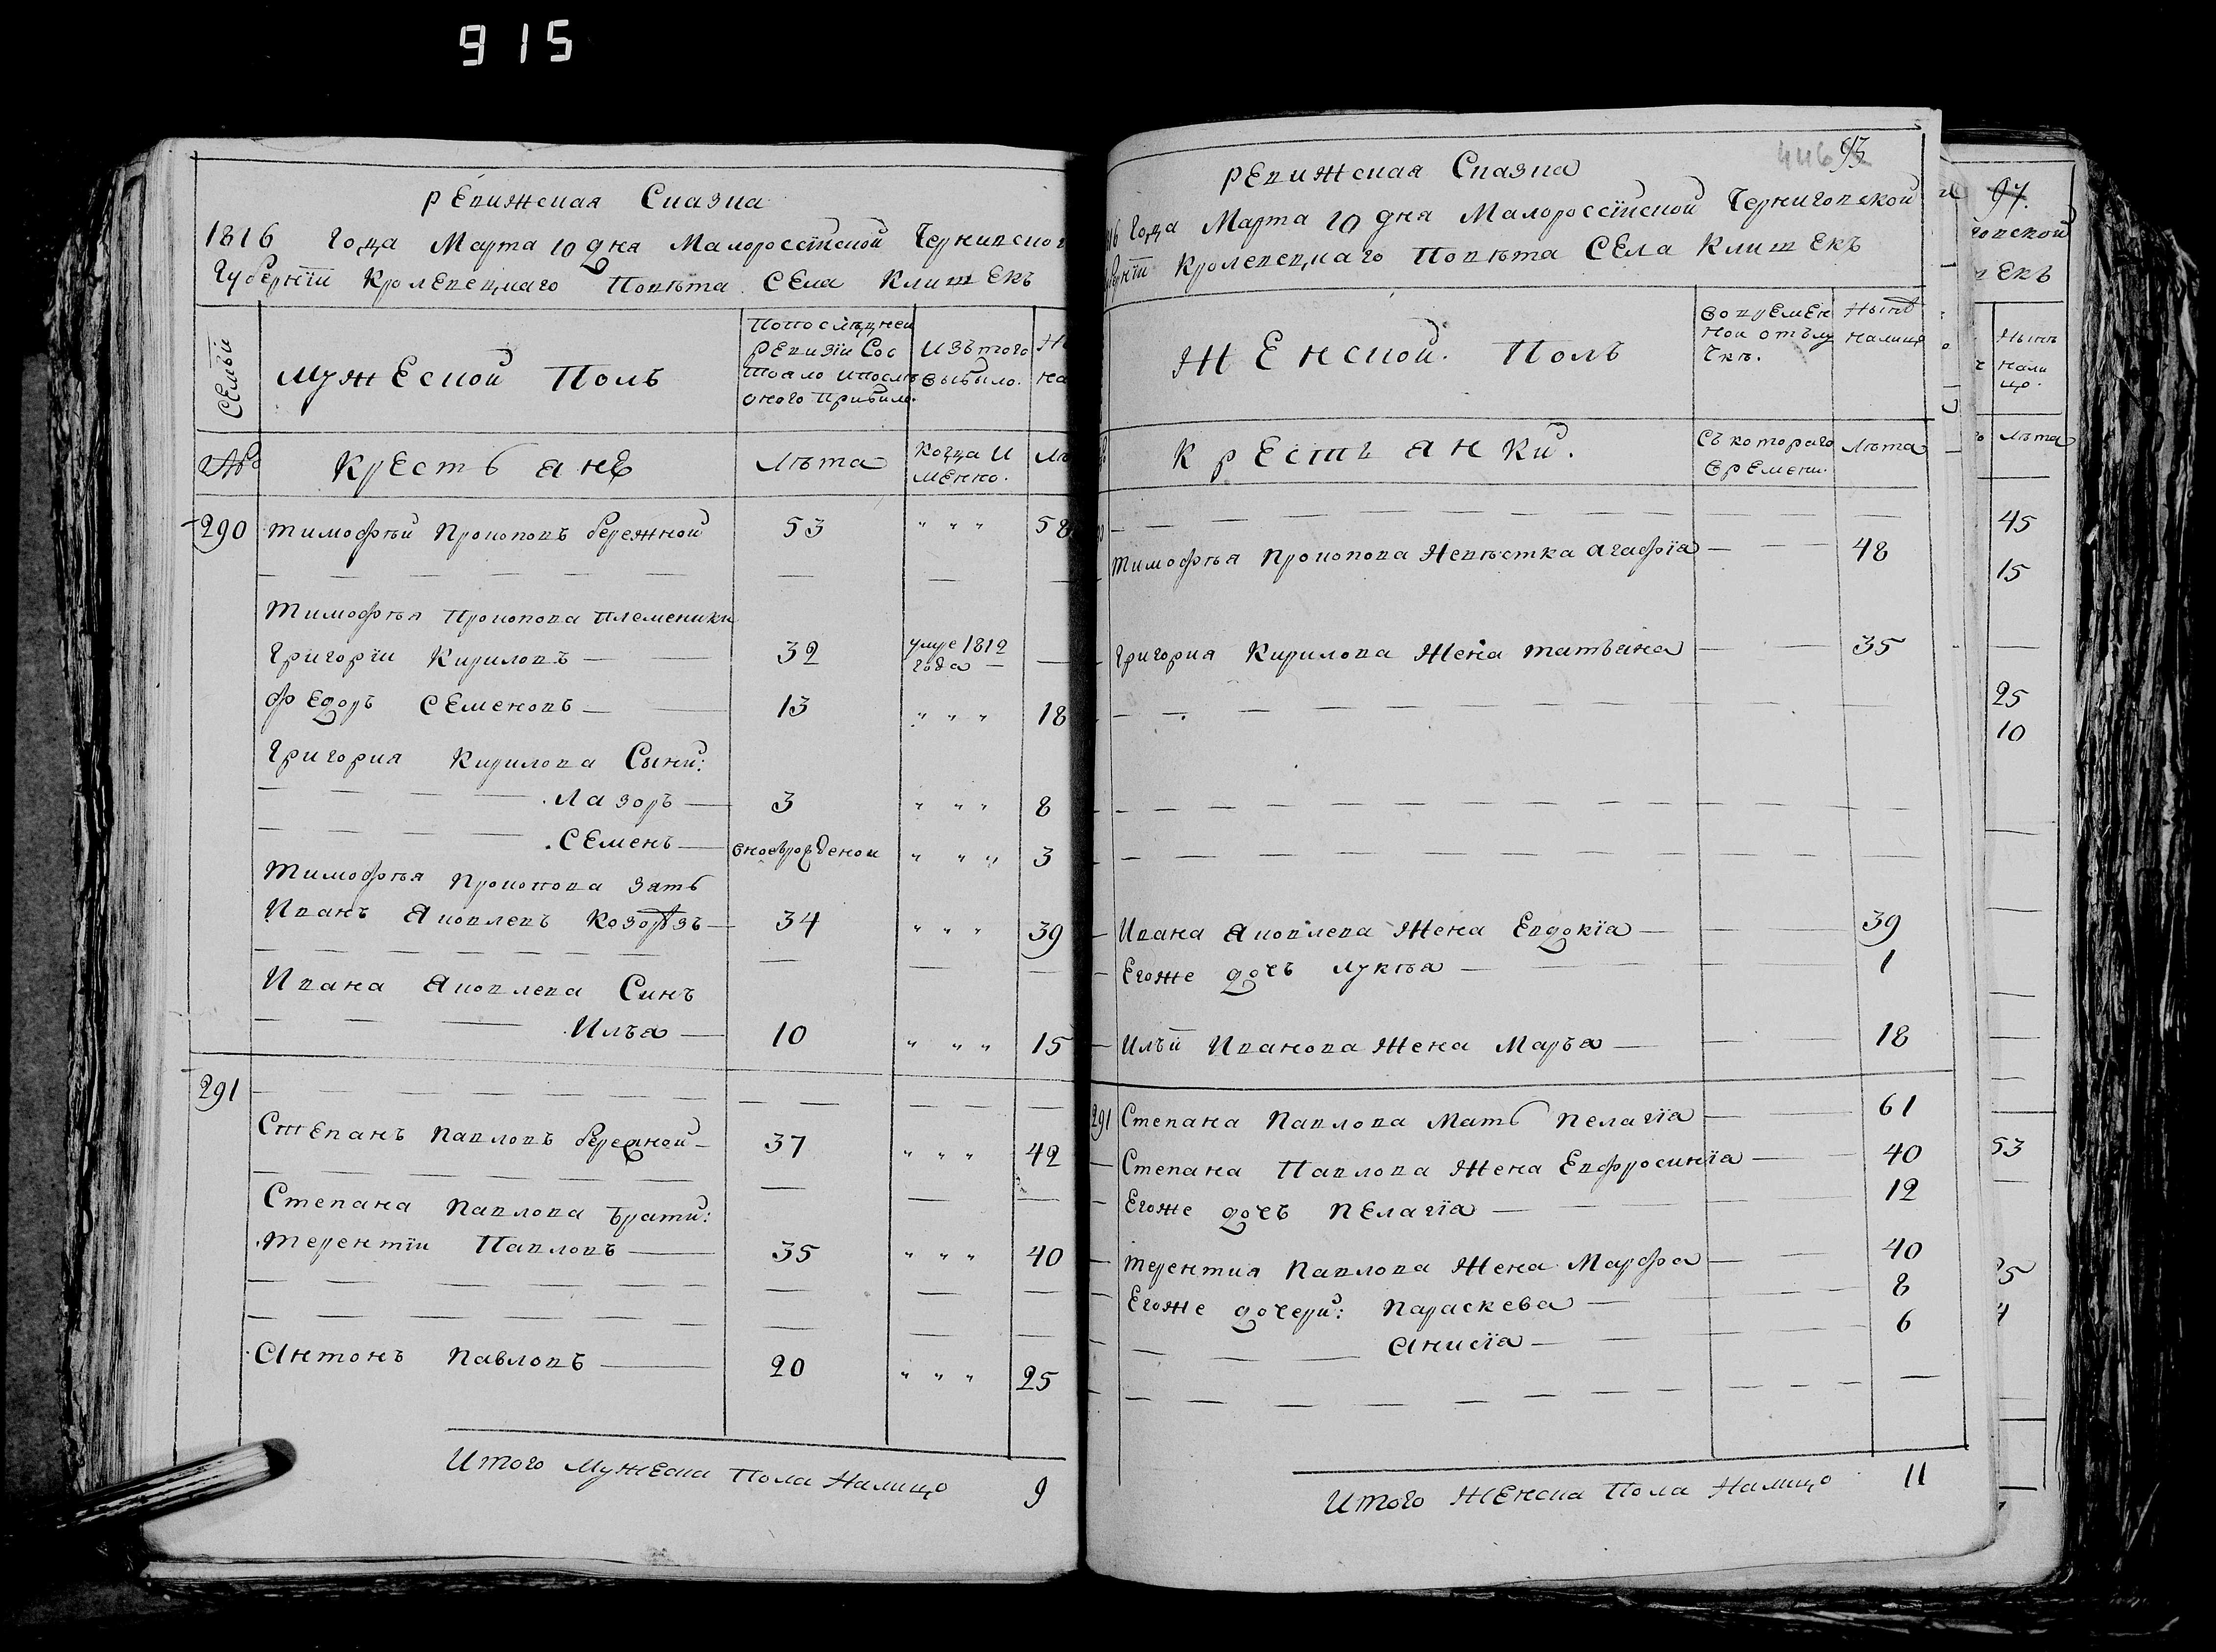 915
Ревижская Сказка
1816 Года Марта 10 дня Малороссійской Чернигвской
Губерніи Кролевецкаго Повѣта Села Клишекъ
Семьи
Мужеской Полъ
Попоследней Ревизіи Состояло ипосле оного Прибыло.
Изъ того выбыло.
№
Крестьяне
Лѣта
Когда И менно.
290 Тимофѣй Прокоповъ бережной 53 " " " 58
Тимофѣя Прокопова племеники
Григорій Кириловъ — 32 умре 1812 года —
Федоръ Семеновъ — 13 " " " 18
Григория Кирилова Сыни:
Лазоръ — 3 " " " 8
Семенъ — вноврожденой " " " 3
Тимофѣя Прокопова зять
Иванъ Яковлевъ — 34 " " " 39
Ивана Яковлева Синъ
Илъа — 10 " " " 15
291
Степанъ Павловъ бережной — 37 " " " 42
Степана Павлова братй:
Терентіи Павловъ — 35 " " " 40
Антонъ Павловъ — 20 " " " 25
Итого Мужеска Пола Налицо 9
446 93
Ревижская Сказка
816 Года Марта 10 дня Малороссійской Черниговской
Губерніи Кролевецкаго Повѣта Села Клишекъ
Женской Полъ
Вовремен ной отълу чкѣ.
Нынѣ налицо
Крестьянки.
Съ котораго времени.
Лѣта
Тимофѣя Прокопова Невѣстка Агафіа — 48
Григория Кирилова Жена Татьяна — 35
Ивана Яковлева Жена Евдокіа — 39
Егоже дочъ Лукѣа — 1
Илъи Иванова Жена Маръа — 18
291 Степана Павлова Мать Пелагіа — 61
Степана Павлова Жена Евфросиніа — 40
Егоже дочъ Пелагіа — 12
Терентия Павлова Жена Марфа — 40
Егоже дочери: Параскева — 8
Анисіа — 6
Итого Женска Пола Налицо 11
94.
говской
екъ
Нынѣ
нали
цо.
Лѣта
45
15
25
10
53